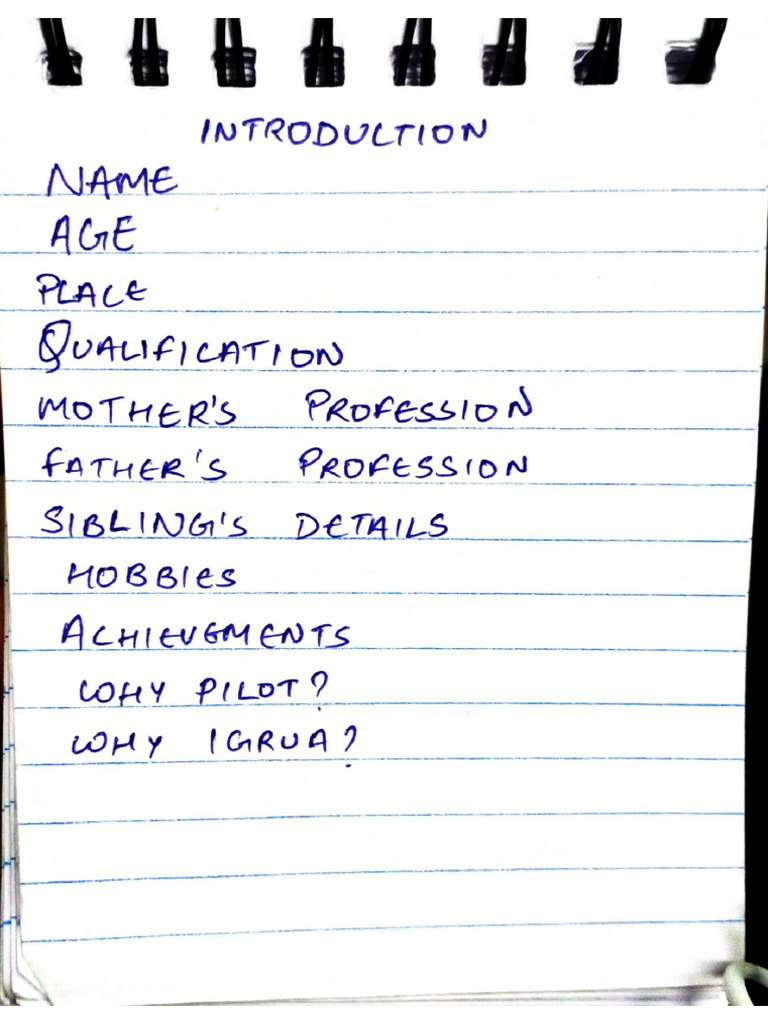 INTRODUCTION
NAME
AGE
PLACE
QUALIFICATION
MOTHER'S PROFESSION
FATHER'S PROFESSION
SIBLING'S DETAILS
HOBBIES
ACHIEVEMENTS
WHY PILOT?
WHY IGRUA?